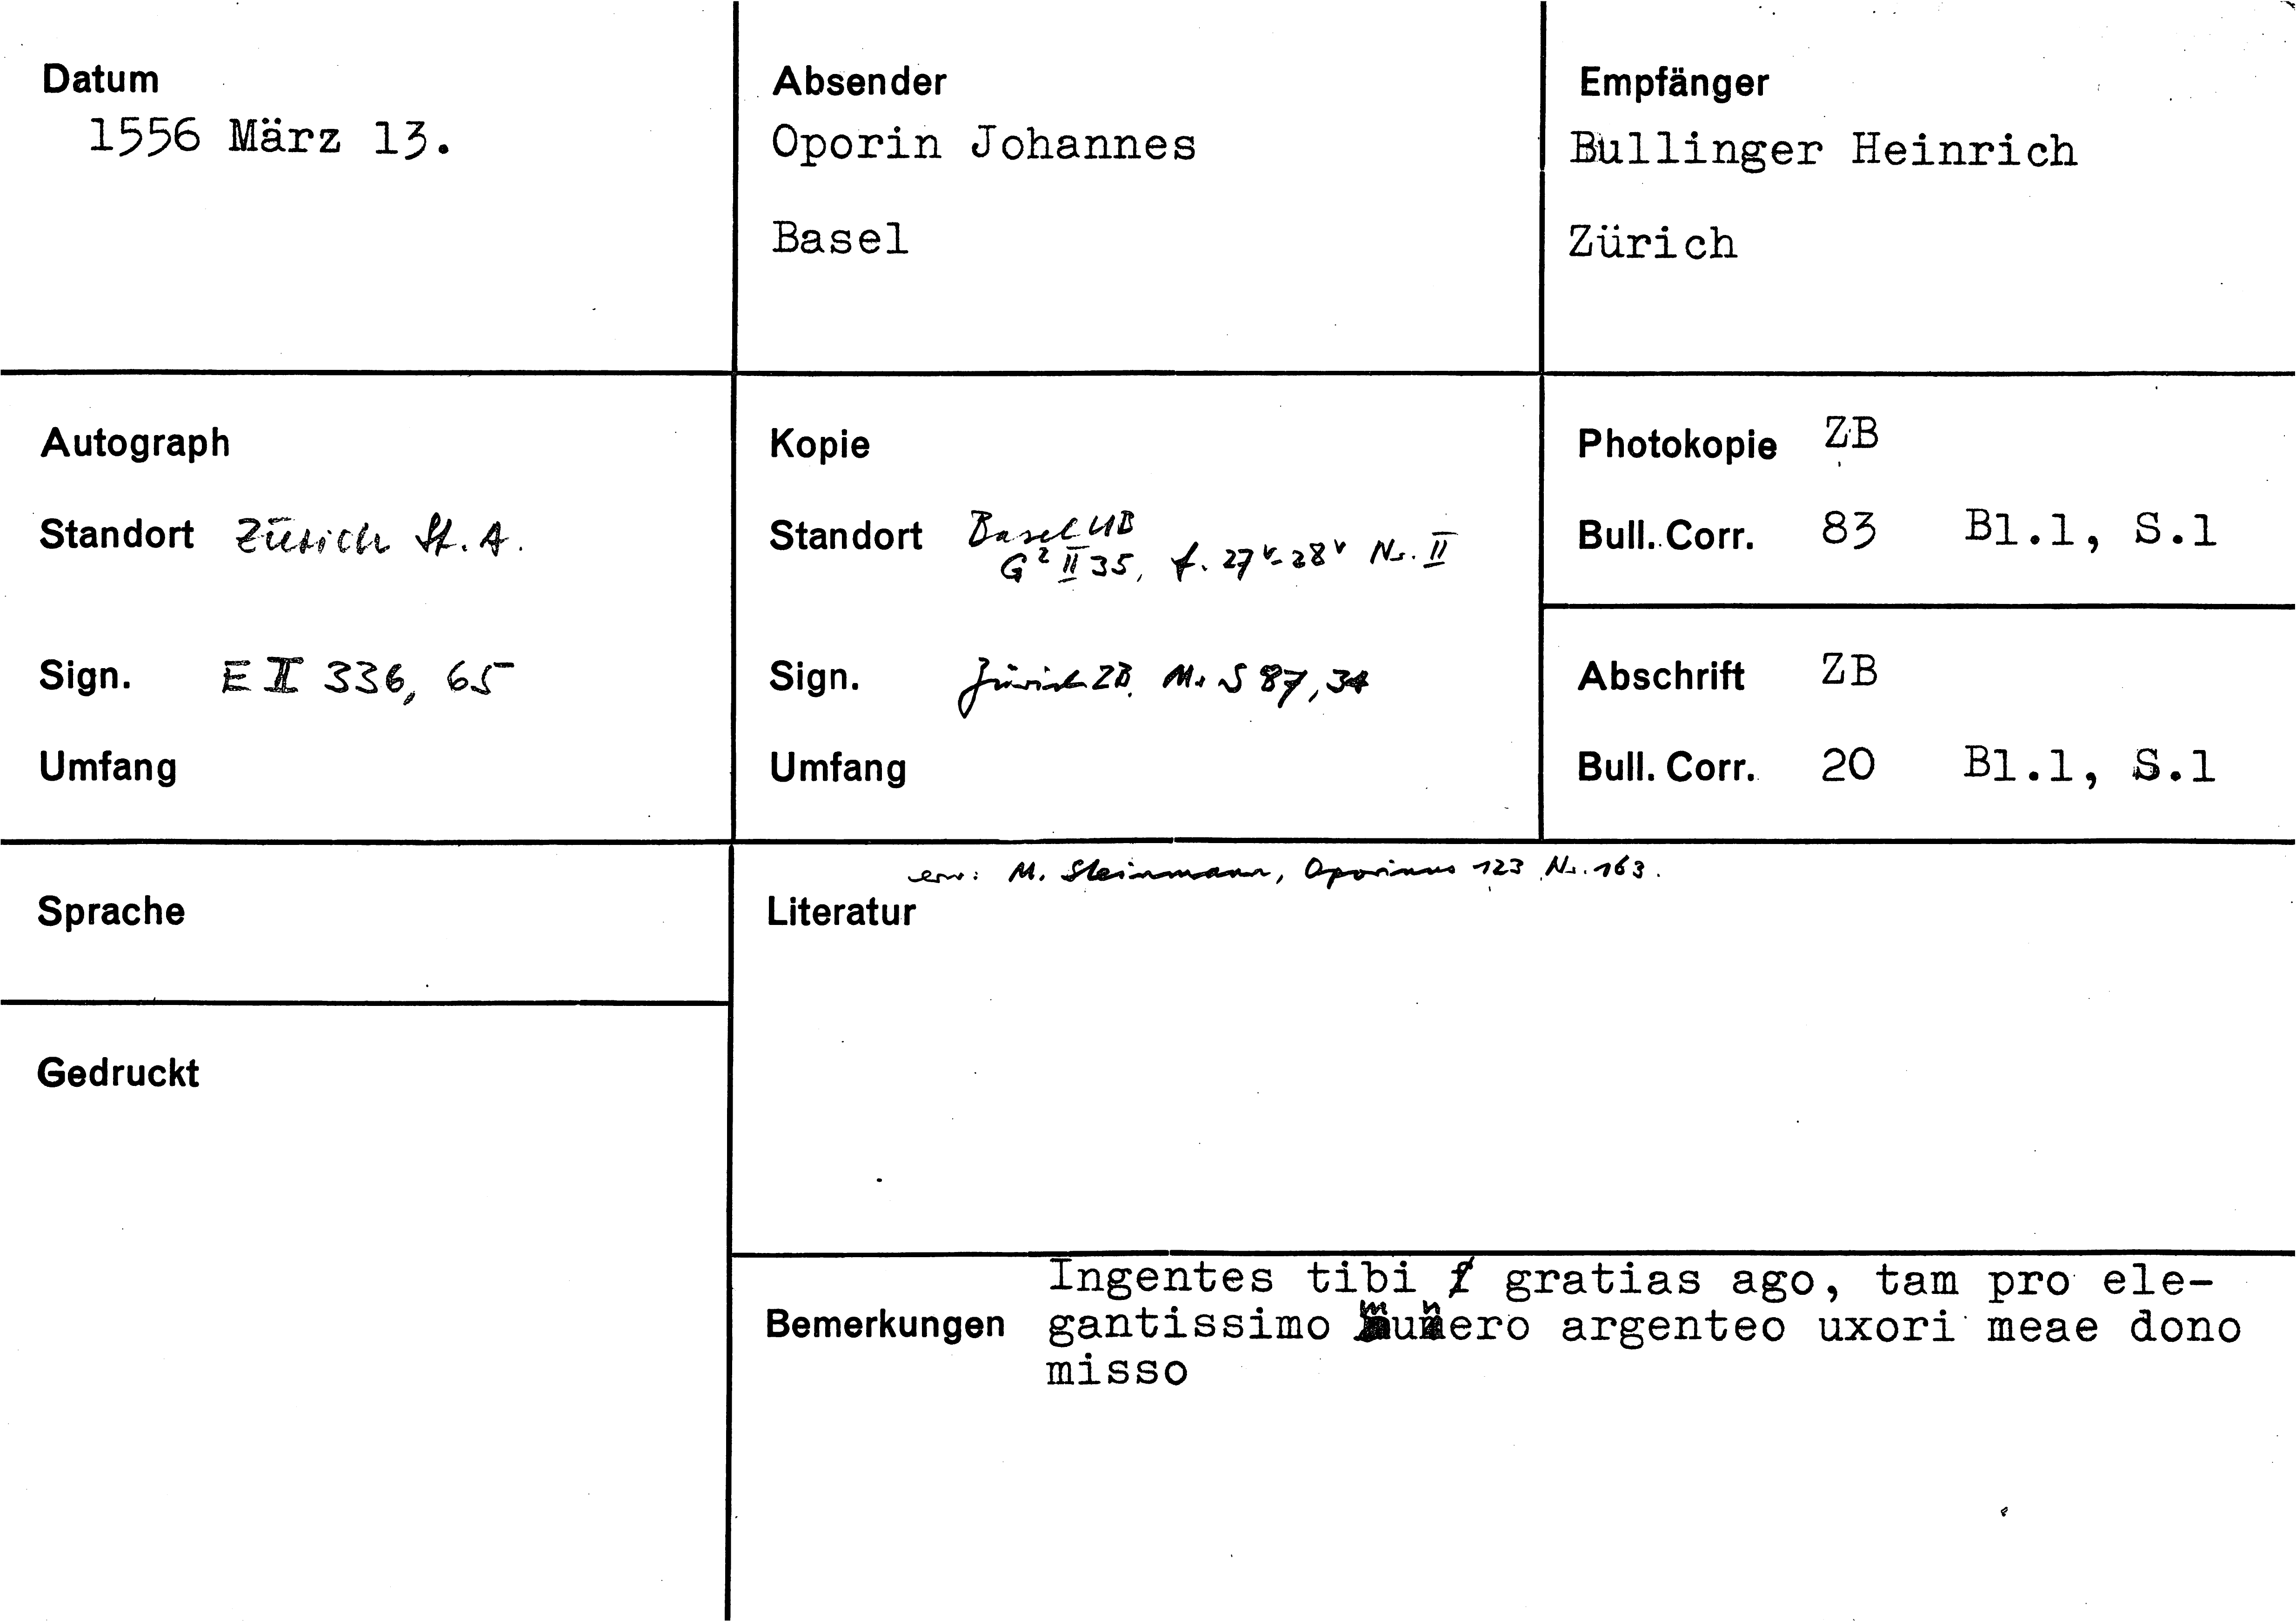 Datum
1556 März 13.
Absender
Oporin Johannes
Basel
Empfänger
Bullinger Heinrich
Zürich
Autograph
Standort Zürich St. A.
Sign. E II 336, 65
Umfang
Kopie
Standort Basel UB
G² II 35, f. 27ᵛ-28ᵛ Nr. II
Sign. Zürich ZB, Ms S 87, 34
Umfang
Photokopie ZB
Bull. Corr. 83 Bl.1, S.1
Abschrift ZB
Bull. Corr. 20 Bl.1, S.1
Sprache
Gedruckt
erw: M. Steinmann, Oporinus 123 Nr. 163.
Literatur
Bemerkungen
Ingentes tibi gratias ago, tam pro ele-
gantissimo munero argenteo uxori meae dono
misso